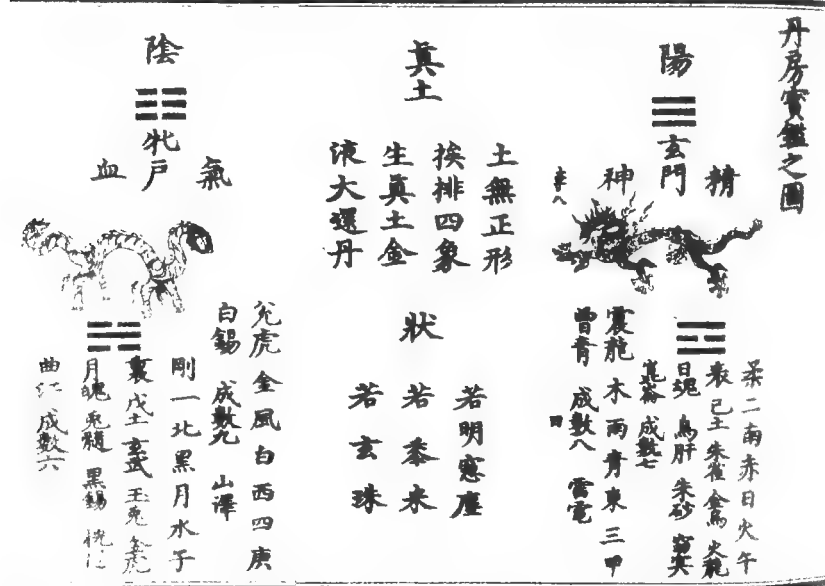 丹房寶鑑之圖
陽
玄門
精
神
柔二南赤日火午
表己土朱雀金烏火龍
日魂烏肝朱砂
崑崙成數七
震龍木雨青東三甲
曾青成數八雷電
真土
土無正形
挨排四象
生真土金
液大還丹
狀
若明窓塵
若黍米
若玄珠
陰
牝戶
氣
血
兌虎金風白西四庚
白錫成數九山澤
剛一北黑月水子
裏戊土玄武玉兔金虎
月魄兔髓黑錫
曲江成數六